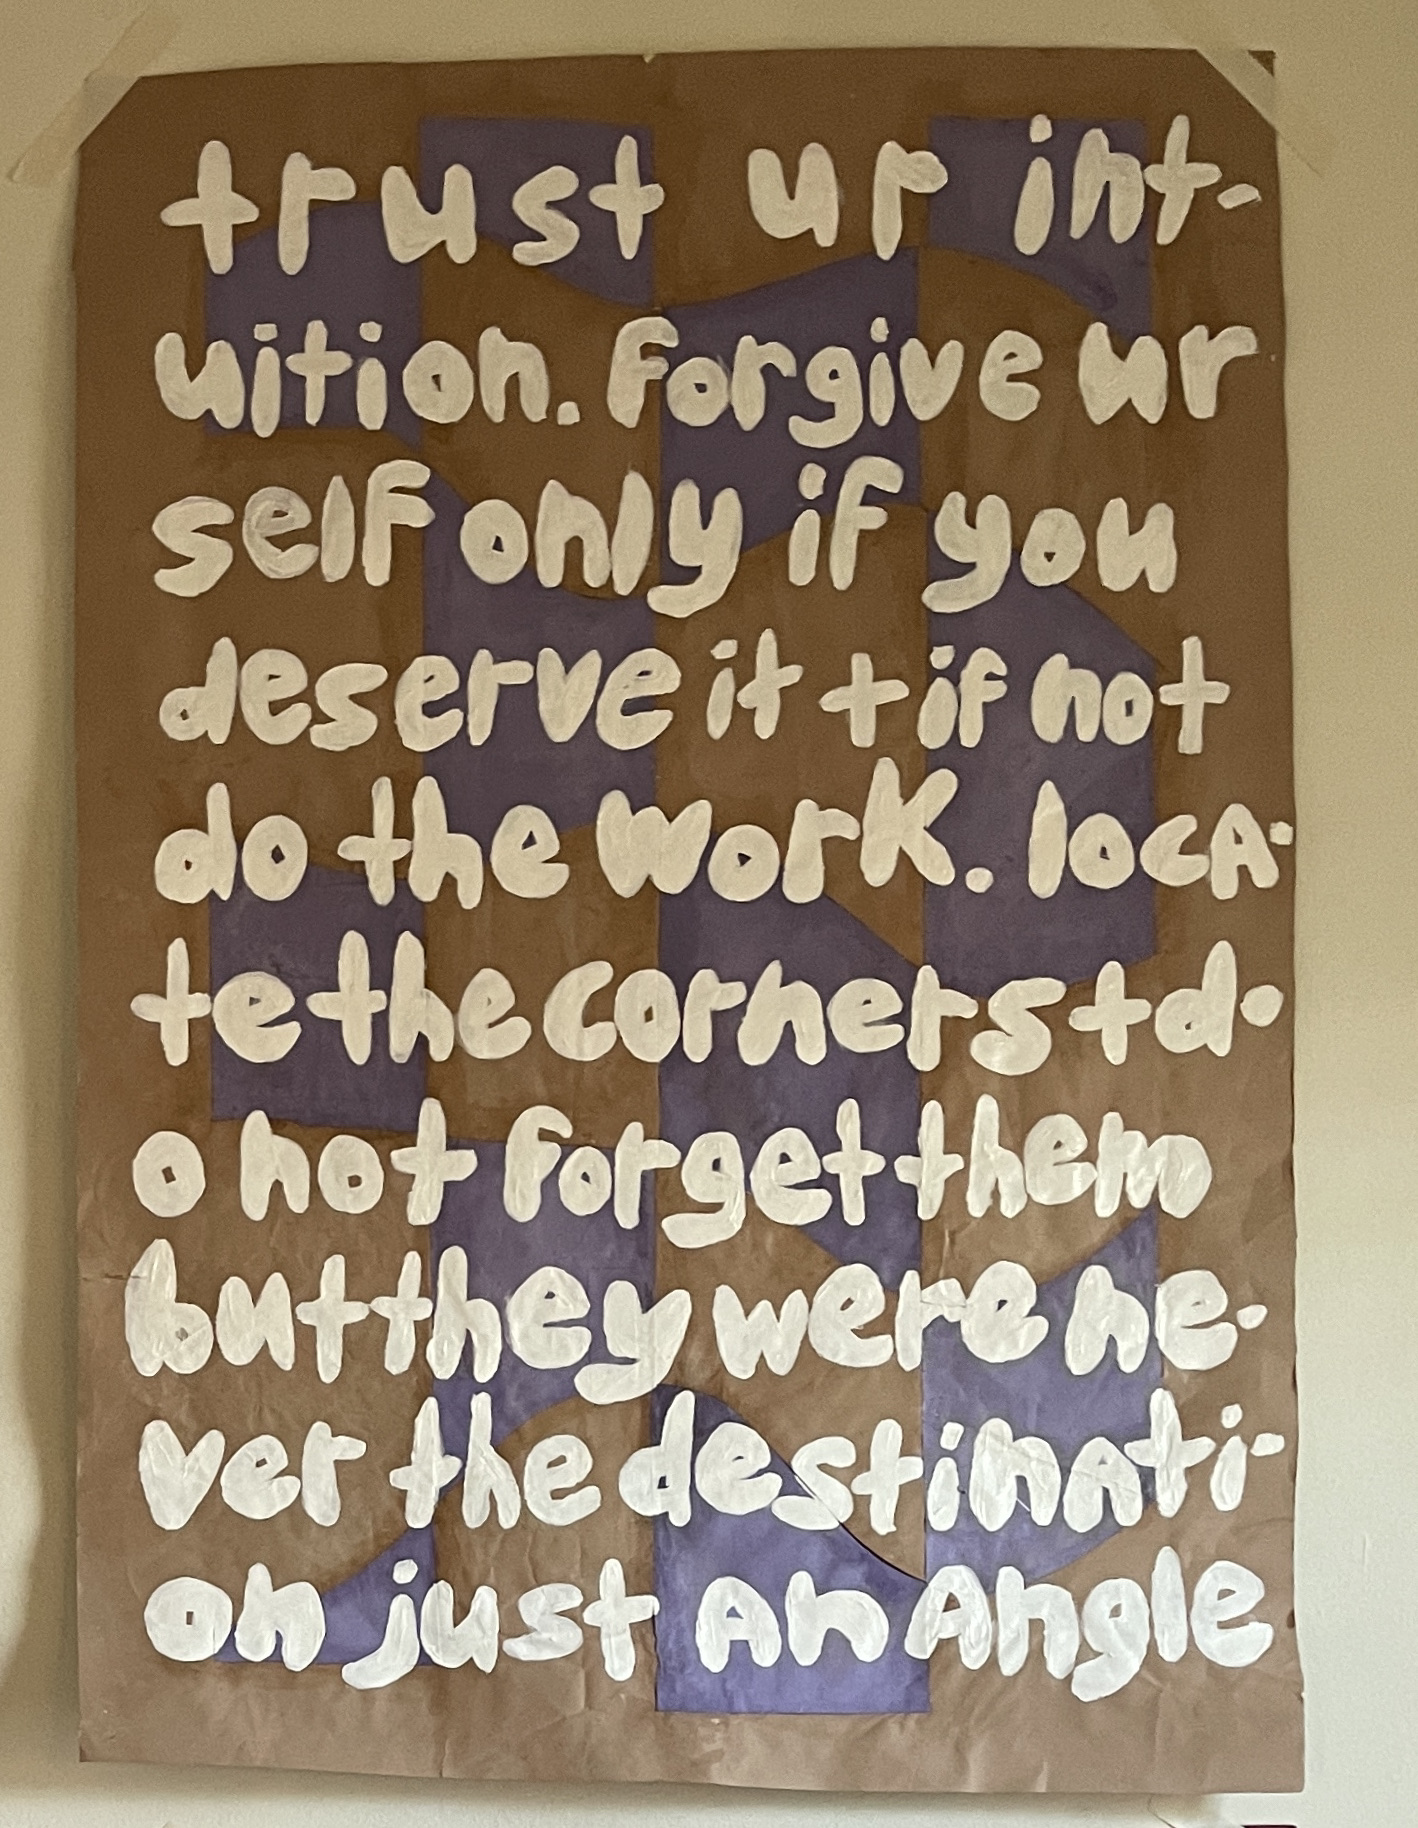 trust ur int-
uition. Forgive ur
self only if you
deserve it + if not
do the work. locA-
te the corners + d-
o not forget them
but they were ne-
ver the destinAti-
on just An Angle